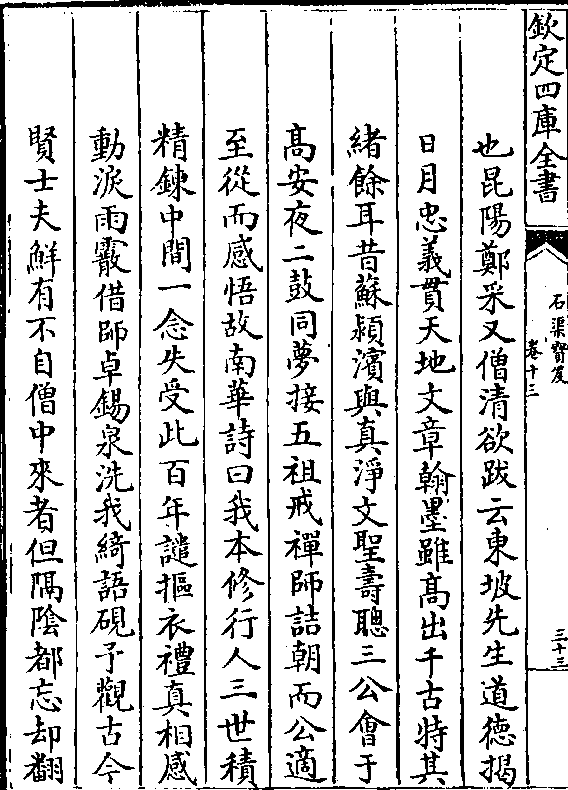 欽定四庫全書
石渠寶笈
卷十三
三十三
也昆陽鄭采又僧清欲跋云東坡先生道德揭
日月忠義貫天地文章翰墨雖髙出千古特其
緒餘耳昔蘇潁濱與真淨文聖壽聰三公會于
髙安夜二鼓同夢接五祖戒禪師詰朝而公適
至從而感悟故南華詩曰我本修行人三世積
精鍊中間一念失受此百年譴摳衣禮真相感
動淚雨霰借師卓錫泉洗我綺語硯予觀古今
賢士夫鮮有不自僧中來者但隔隂都忘却翻